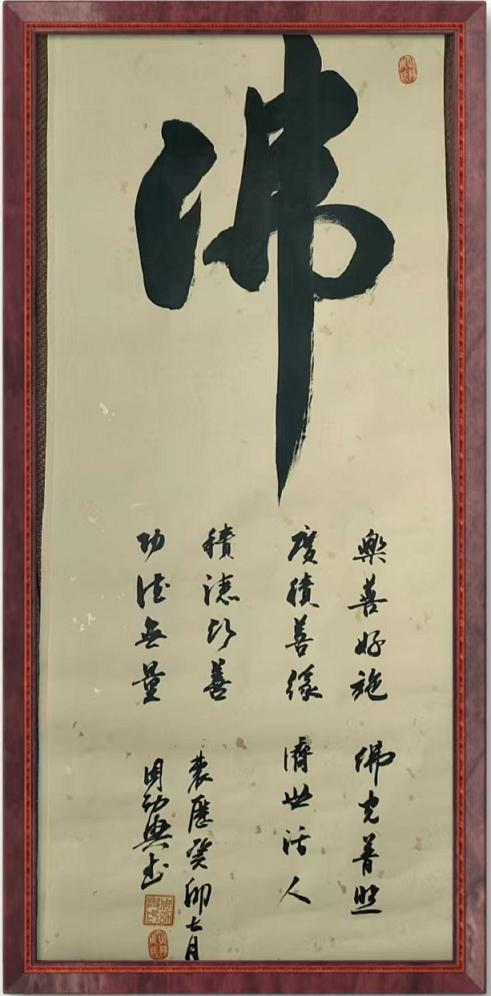 佛
樂善好施 佛光普照
廣積善緣 濟世活人
積德行善
功德無量
農歷癸卯七月
周功興书